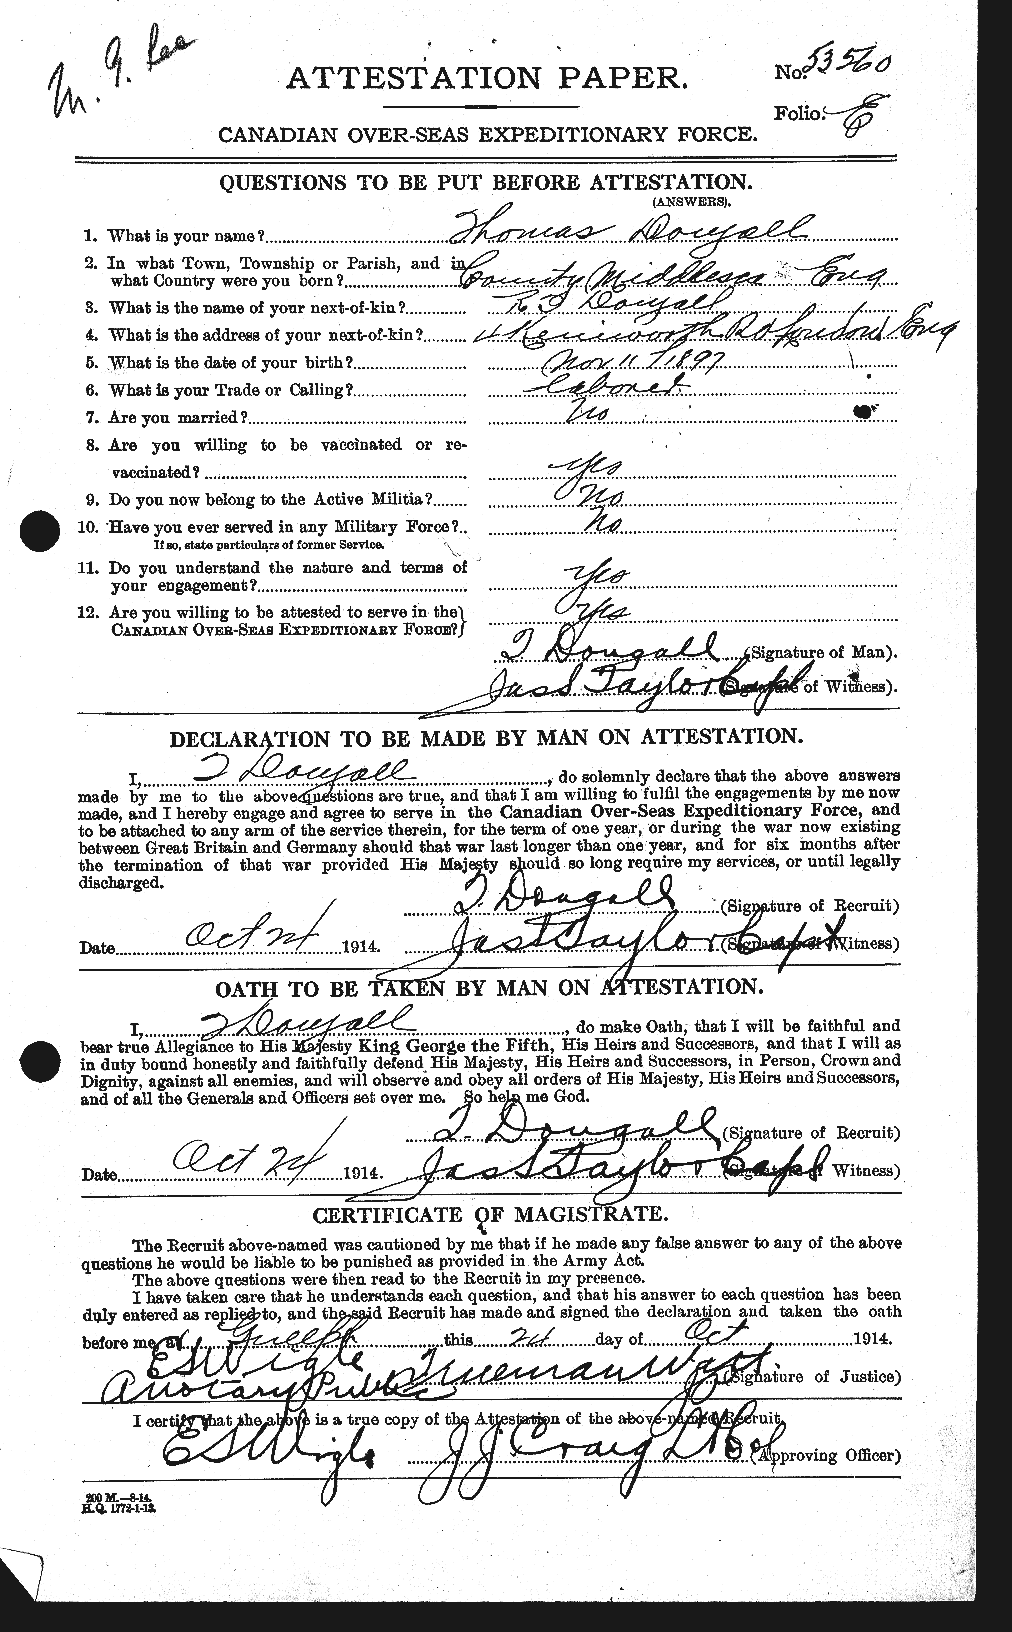 M. G. Lee
ATTESTATION PAPER.
No. 53560
Folio. E
CANADIAN OVER-SEAS EXPEDITIONARY FORCE.
QUESTIONS TO BE PUT BEFORE ATTESTATION.
(ANSWERS).
1. What is your name? Thomas Dougall
2. In what Town, Township or Parish, and in
what Country were you born? County Middlesex Eng
3. What is the name of your next-of-kin? R T Dougall
4. What is the address of your next-of-kin? 4 Kenilworth Rd London Eng
5. What is the date of your birth? Nov 11 1897
6. What is your Trade or Calling? Laborer
7. Are you married? No
8. Are you willing to be vaccinated or re-
vaccinated? Yes
9. Do you now belong to the Active Militia? No
10. Have you ever served in any Military Force? No
If so, state particulars of former Service.
11. Do you understand the nature and terms of
your engagement? Yes
12. Are you willing to be attested to serve in the
CANADIAN OVER-SEAS EXPEDITIONARY FORCE? Yes
T Dougall (Signature of Man).
Jas S Taylor Capt (Signature of Witness).
DECLARATION TO BE MADE BY MAN ON ATTESTATION.
I, T Dougall, do solemnly declare that the above answers
made by me to the above questions are true, and that I am willing to fulfil the engagements by me now
made, and I hereby engage and agree to serve in the Canadian Over-Seas Expeditionary Force, and
to be attached to any arm of the service therein, for the term of one year, or during the war now existing
between Great Britain and Germany should that war last longer than one year, and for six months after
the termination of that war provided His Majesty should so long require my services, or until legally
discharged.
T. Dougall (Signature of Recruit)
Date Oct 24 1914. Jas S Taylor Capt (Signature of Witness)
OATH TO BE TAKEN BY MAN ON ATTESTATION.
I, T Dougall, do make Oath, that I will be faithful and
bear true Allegiance to His Majesty King George the Fifth, His Heirs and Successors, and that I will as
in duty bound honestly and faithfully defend His Majesty, His Heirs and Successors, in Person, Crown and
Dignity, against all enemies, and will observe and obey all orders of His Majesty, His Heirs and Successors,
and of all the Generals and Officers set over me. So help me God.
T. Dougall (Signature of Recruit)
Date Oct 24 1914. Jas S Taylor Capt (Signature of Witness)
CERTIFICATE OF MAGISTRATE.
The Recruit above-named was cautioned by me that if he made any false answer to any of the above
questions he would be liable to be punished as provided in the Army Act.
The above questions were then read to the Recruit in my presence.
I have taken care that he understands each question, and that his answer to each question has been
duly entered as replied to, and the said Recruit has made and signed the declaration and taken the oath
before me, at Guelph this 24 day of Oct 1914.
E S Wigle (Signature of Justice)
A Notary Public
I certify that the above is a true copy of the Attestation of the above-named Recruit.
E S Wigle J J Craig Lt Col (Approving Officer)
200 M.—8-14.
H.Q. 1772-1-13.